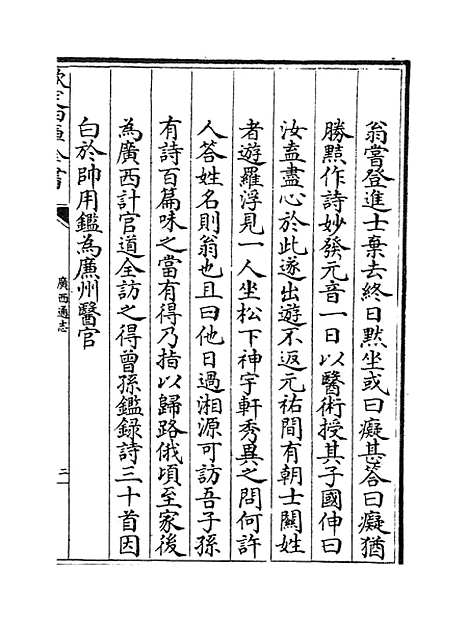 翁嘗登進士棄去終日黙坐或曰癡甚答曰癡猶
勝黠作詩妙發元音一日以醫術授其子國伸曰
汝盍盡心於此遂出遊不返元祐間有朝士闗姓
者遊羅浮見一人坐松下神宇軒秀異之問何許
人答姓名則翁也且曰他日過湘源可訪吾子孫
有詩百篇味之當有得乃指以歸路俄頃至家後
為廣西計官道全訪之得曾孫鑑録詩三十首因
白於帥用鑑為廉州醫官
欽定四庫全書
廣西通志